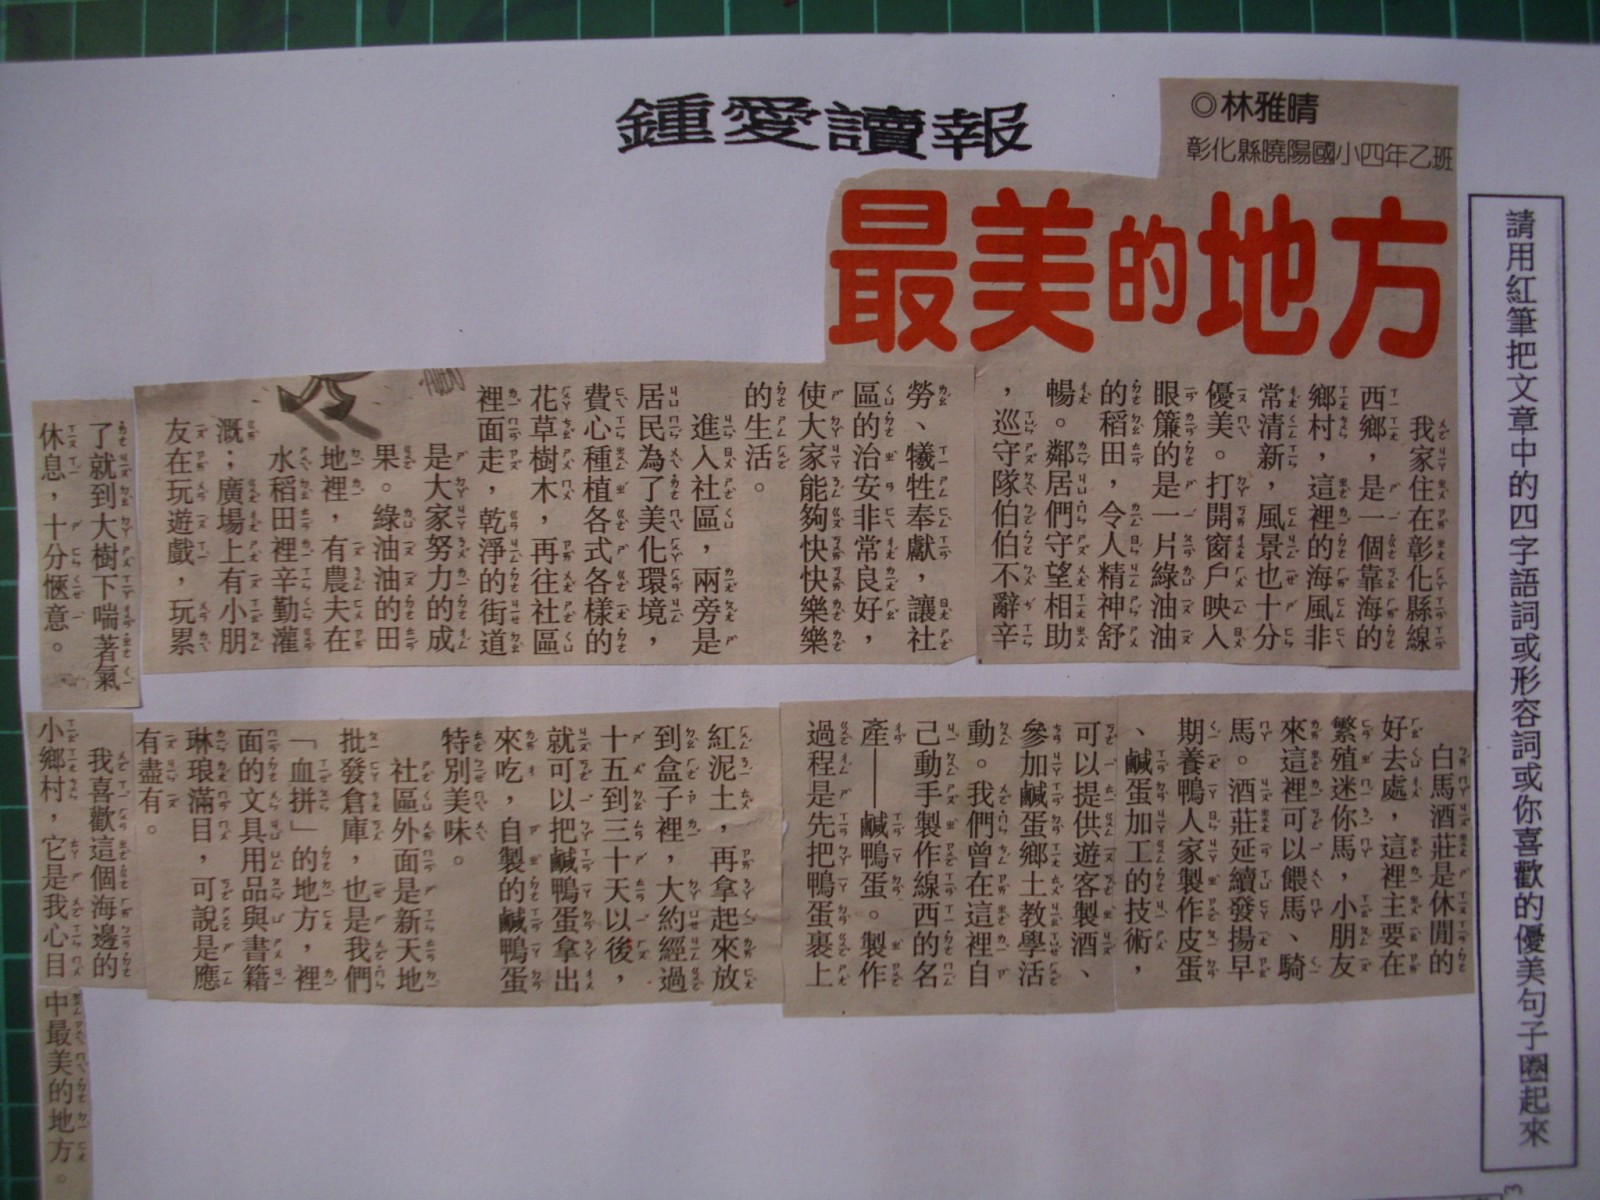 鍾愛讀報
◎林雅晴
彰化縣曉陽國小四年乙班
最美的地方
請用紅筆把文章中的四字語詞或形容詞或你喜歡的優美句子圈起來
我家住在彰化縣線
西鄉，是一個靠海的
鄉村，這裡的海風非
常清新，風景也十分
優美。打開窗戶映入
眼簾的是一片綠油油
的稻田，令人精神舒
暢。鄰居們守望相助
，巡守隊伯伯不辭辛
勞、犧牲奉獻，讓社
區的治安非常良好，
使大家能夠快快樂樂
的生活。
進入社區，兩旁是
居民為了美化環境，
費心種植各式各樣的
花草樹木，再往社區
裡面走，乾淨的街道
是大家努力的成
果。綠油油的田
地裡，有農夫在
水稻田裡辛勤灌
溉；廣場上有小朋
友在玩遊戲，玩累
了就到大樹下喘著氣
休息，十分愜意。
白馬酒莊是休閒的
好去處，這裡主要在
繁殖迷你馬，小朋友
來這裡可以餵馬、騎
馬。酒莊延續發揚早
期養鴨人家製作皮蛋
、鹹蛋加工的技術，
可以提供遊客製酒、
參加鹹蛋鄉土教學活
動。我們曾在這裡自
己動手製作線西的名
產——鹹鴨蛋。製作
過程是先把鴨蛋裹上
紅泥土，再拿起來放
到盒子裡，大約經過
十五到三十天以後，
就可以把鹹鴨蛋拿出
來吃，自製的鹹鴨蛋
特別美味。
社區外面是新天地
批發倉庫，也是我們
「血拼」的地方，裡
面的文具用品與書籍
琳琅滿目，可說是應
有盡有。
我喜歡這個海邊的
小鄉村，它是我心目
中最美的地方。
3